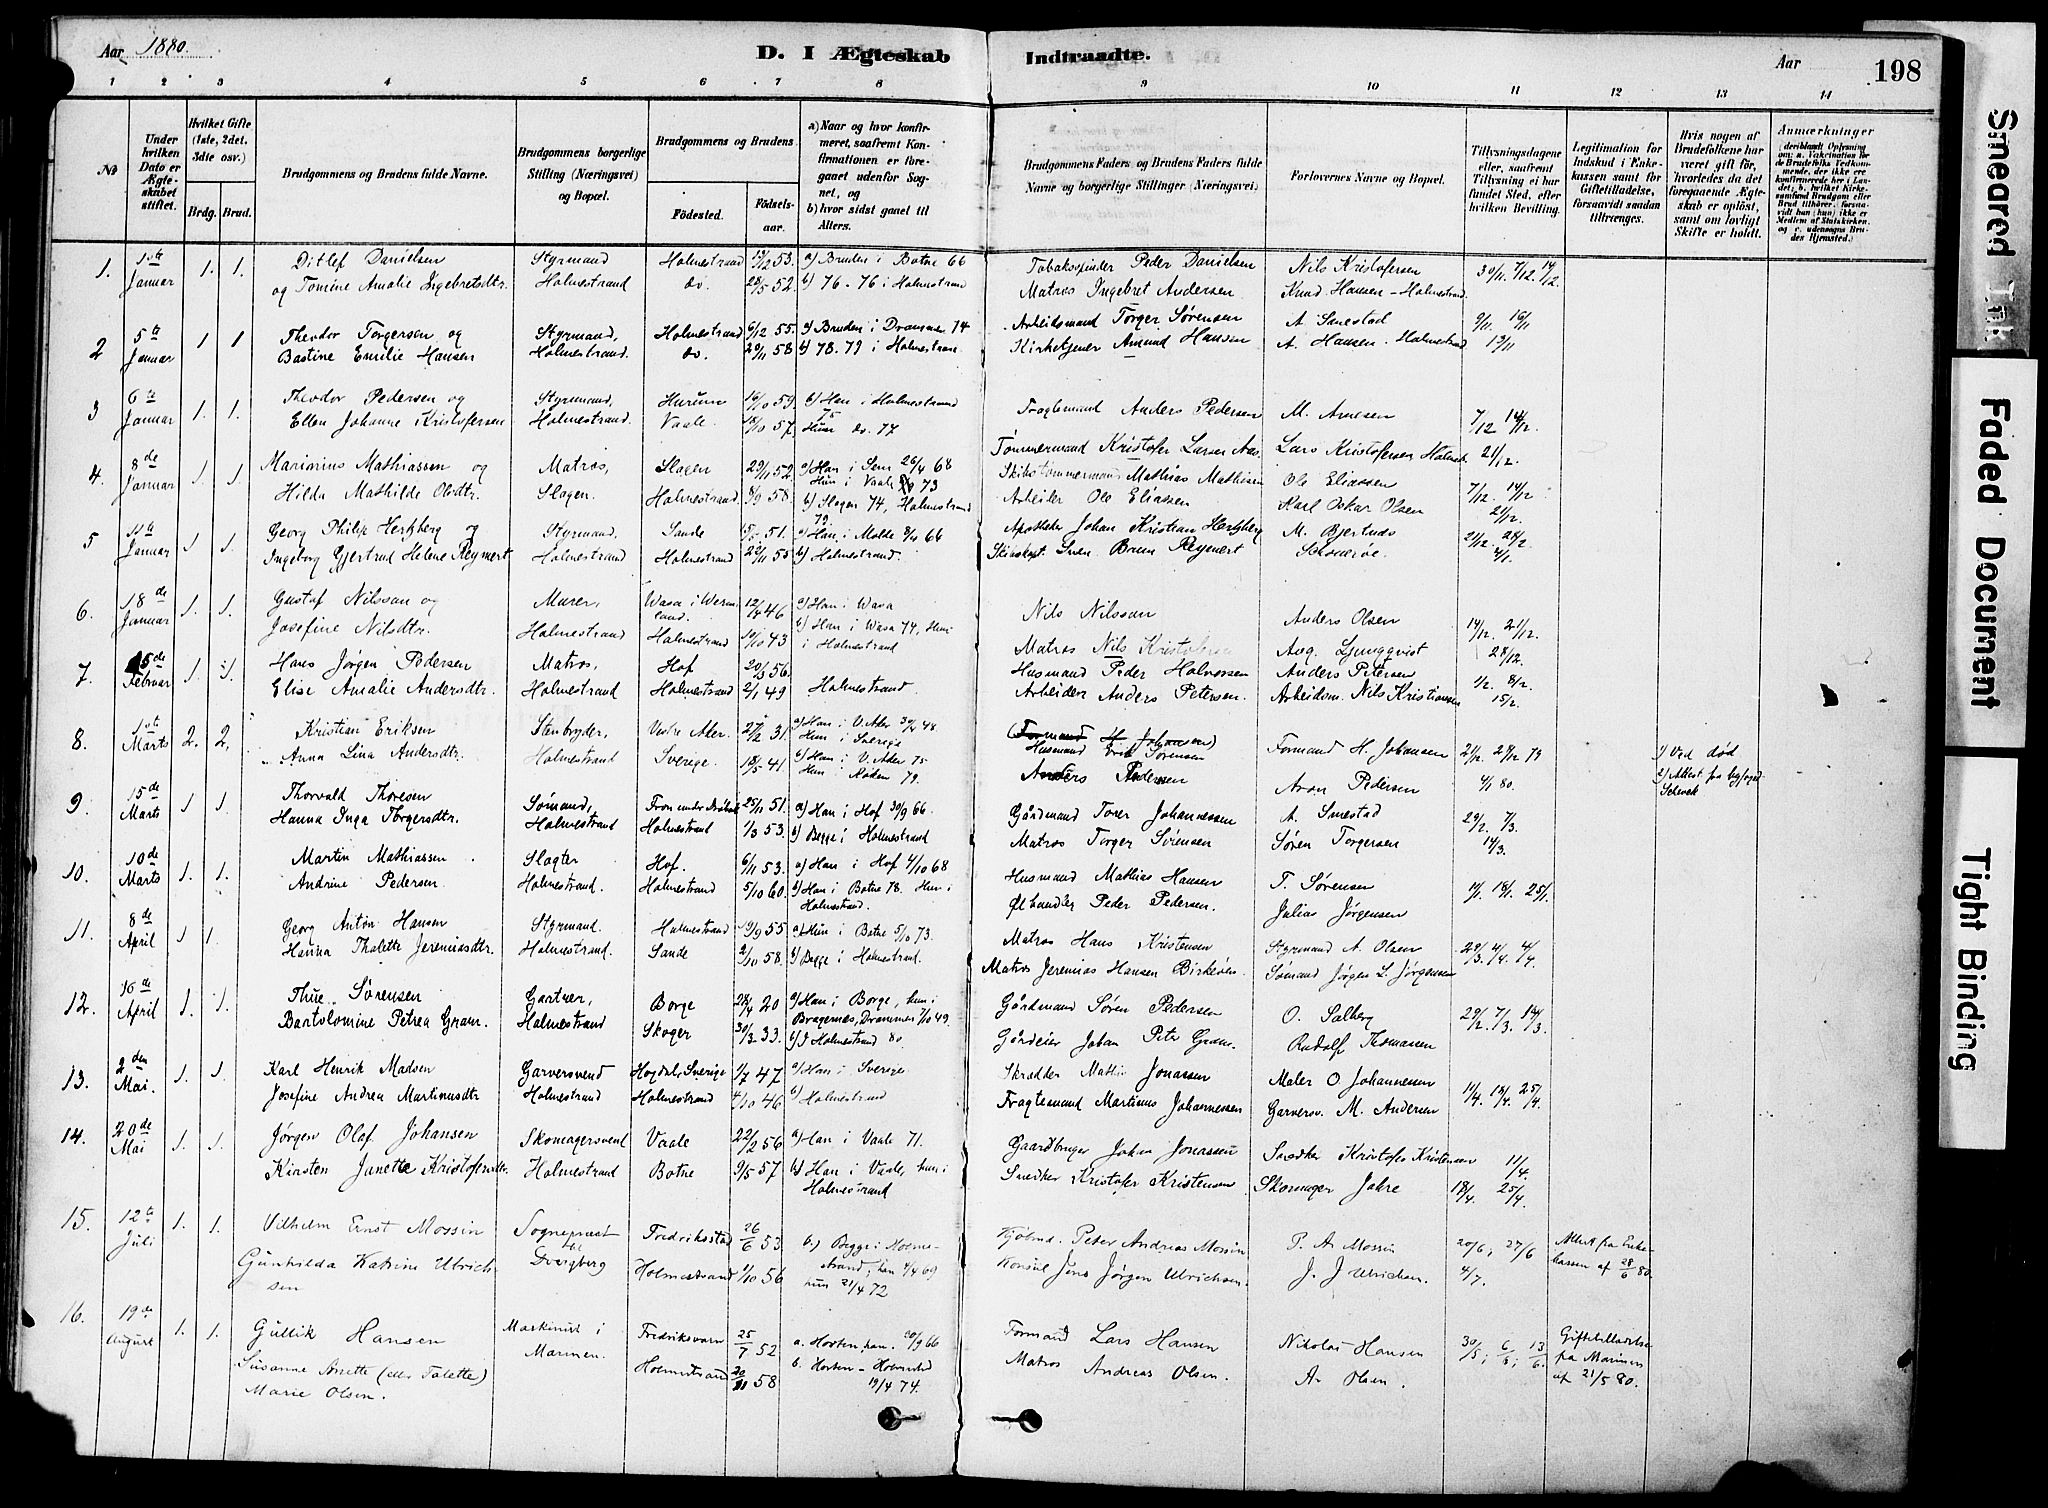 Aar 1880.
D. I Ægteskab Indtraadte.
Aar
198
1 2 3 4 5 6 7 8 9 10 11 12 13 14
No
Under hvilken Dato er Ægteskabet stiftet.
Hvilket Gifte (1ste, 2det, 3die osv.)
Brdg. Brud.
Brudgommens og Brudens fulde Navne.
Brudgommens borgerlige Stilling (Næringsvei) og Bopæl.
Brudgommens og Brudens
Födested.
Födselsaar.
a) Naar og hvor konfirmeret, saafremt Konfirmationen er foregaaet udenfor Sognet, og
b) hvor sidst gaaet til Alters.
Brudgommens Faders og Brudens Faders fulde Navne og borgerlige Stillinger (Næringsvei).
Forlovernes Navne og Bopæl.
Tillysningsdagene eller, saafremt Tillysning ei har fundet Sted, efter hvilken Bevilling.
Legitimation for Indskud i Enkekassen samt for Giftetilladelse, forsaavidt saadan tiltrænges.
Hvis nogen af Brudefolkene har været gift för, hvorledes da det foregaaende Ægteskab er oplöst, samt om lovligt Skifte er holdt.
Anmærkninger
1. 1ste Januar 1. 1. Ditlef Danielsen Styrmand Holmestrand 53. a) Bruden i Botne 66 Tobaksspinder Peder Danielsen Nils Kristofersen 30/11. 7/12. 14/12
og Tomine Amalie Ingebretsdtr. Holmestrand do. 28/5 52. b) 76 - 76 i Holmestrand Matros Ingebret Andersen Knud Hansen - Holmestrand
2 5te Januar 1 1 Theodor Torgersen og Styrmand, Holmestrand 6/12 55. a) Bruden i Drammen 74 Arbeidsmand Torger Sørensen A. Sanestad 9/11 16/11
Bastine Emilie Hansen Holmestrand. do. 29/11 58 b) 78. 79 i Holmestrand Kirketjener Amund Hansen A. Hansen. Holmestrand
3 6te Januar 1. 1. Theodor Pedersen og Styrmand, Hurum 16/10 59. b) Han i Holmestrand 75 Fragtemand Anders Pedersen M. Arnesen 7/12 14/12.
Ellen Johanne Kristofersen Holmestrand. Vaale 18/10 57. Hun do. 77 Tömmermand Kristofer Larsen Lars Kristofersen 21/12.
4. 8de Januar 1. 1. Marinius Mathiassen og Matros, Slagen 29/11 52. a) Han i Sem 26/4 68 Hun i Vaale 73 Skibstømmermand Mathias Mathisen Ole Eliassen 7/12. 14/12
Hilda Mathilde Olsdtr. Slagen. Holmestrand. 8/9 58. b) Slagen 74, Holmestrand 79 Arbeider Ole Eliassen Karl Oskar Olsen 21/12.
5 11te Januar 1 1. Georg Philip Herzberg og Styrmand, Sande 51. a) Han i Molde 66 Apotheker Johan Kristian Herzberg M. Bjertnæs 21/12.
Ingeborg Gjertrud Helene Reymert Holmestrand Holmestrand 22/11 55 b) Holmestrand. Sven Bruun Reymert 4/1.
6. 18de Januar 1. 1. Gustaf Nilsson og Murer, Wasa i Wermland. 12/4 46 a) Han i Wasa Nils Nilsson Anders Olsen 14/12. 21/12.
Josefine Nilsdtr. Holmestrand Holmestrand 10/10 43 b) Han i Wasa 74, Hun i Holmestrand Matros Nils Aug. Ljungqvist 28/12.
7. 15de Februar 1. 1. Hans Jørgen Pedersen Matros, Hof 20/3 56. Husmand Peder Halvorsen Anders Petersen 1/2. 8/2.
Elise Amalie Andersdtr. Holmestrand Holmestrand 2/1 49 Holmestrand. Arbeider Anders Petersen. Arbeidsm. Nils Kristiansen 15/2.
8. 1ste Marts 2. 2. Kristian Eriksen Stenbryder, Vestre Aker. 27/2 31. a) Han i V. Aker 48. Hun i Sverige (Formand H. Johansen) Husmand Erik Sørensen Formand H. Johansen 21/12. 79 1) Ved død
Anna Lina Andersdtr. Holmestrand Sverige. 18/5 41. b) Han i V. Aker 75 Hun i Röken 79. Anders Pedersen Aron Pedersen 4/1 80. 2) Attest fra
9. 15de Marts 1 1. Thorvald Thoresen Sømand, Fron under Drøbak 25/11 51. a) Han i Hof 30/9 66. Gårdmand Torer Johannessen A. Smestad 29/2. 7/3.
Hanna Inga Torgersdtr. Holmestrand Holmestrand 1/3 53. b) Begge i Holmestrand Matros Torger Sörensen Sören Torgersen 14/3.
10. 10de Marts 1. 1. Martin Mathiassen Slagter Hof. 6/11 53. a) Han i Hof 4/10 68 Husmand Mathias Hansen T. Sørensen 11/1. 18/1. 25/1.
Andrine Pedersen Holmestrand. Holmestrand 5/10 60. b) Han i Botne 78. Hun i Holmestrand. Ølhandler Peder Pedersen. Julius Jörgensen
11. 8de April 1 1. Georg Anton Hansen Styrmand. Holmestrand 19/9 55 a) Hun i Botne 5/10 73. Matros Hans Kristensen Styrmand A. Olsen 29/3. 4/4.
Hanna Thalette Jeremiasdtr. Holmestrand. Sande 2/10 58. b) Begge i Holmestrand. Matros Jeremias Hansen Sömand Jörgen L. Jörgensen
12. 16de April 1. 1. Thue Sørensen Gartner, Borge 28/4 20 a) Han i Borge, hun i Bragernæs, Drammen 7/10 49. Gårdmand Sören Pedersen O. Solberg 29/2. 7/3. 14/3.
Bartolomine Petrea Gram. Holmestrand Skoger 30/3 33. b) I Holmestrand 80. Gårdeier Johan Peter Gram. Rudolf Thomassen
13. 2den Mai. 1. 1. Karl Henrik Madsen Garversvend Høgdal, Sverige 1/7 47 a) Han i Sverige Skrædder Jonassen Maler O. Johannesen 11/4. 18/4. 25/4.
Josefine Andrea Martinusdtr Holmestrand Holmestrand 4/10 46 b) Holmestrand Fragtemand Martinus Johannessen Garversv. M. Andersen
14. 20de Mai 1. 1. Jørgen Olaf Johansen Skomagersvend Vaale 22/2 56 a) Han i Vaale 71. Gaardbruger Johan Jonassen Snedker Kristofer Kristensen 11/4
Kirsten Janette Kristofersdtr. Holmestrand Botne 9/5 57 b) Han i Vaale, hun i Holmestrand Snedker Kristofer Kristensen Skomager Jahre 18/4. 25/4.
15. 12te Juli 1. 1. Vilhelm Ernst Mossin Sogneprest til Dverberg Fredriksstad 26/6 53 b.) Begge i Holmestrand, han 4/4 69 hun 21/4 72 Kjöbmd. Peter Andreas Mossin P. A. Mossin 20/6, 27/6 Attest fra Enkekassen af 28/6 80.
Gunhilda Katrine Ulrichsen Holmestrand 1/10 56 Konsul Jens Jörgen Ulrichsen. J. J Ulrichsen. 4/7.
16. 19de August 1. 1. Gullik Hansen Maskinist i Marinen. Fredriksvarn 25/7 52 a. Horten, han. 66 Formand Lars Hansen Nikolai Hansen 30/5; 6/6; 13/6. Giftetilladelse fra Marinen af 21/5 80.
Susanne Anette (eller Talette) Marie Olsen. Holmestrand 58 b. Horten - Holmestd 19/4 74. Matros Andreas Olsen. A. Olsen.
Smeared Ink
Faded Document
Tight Binding